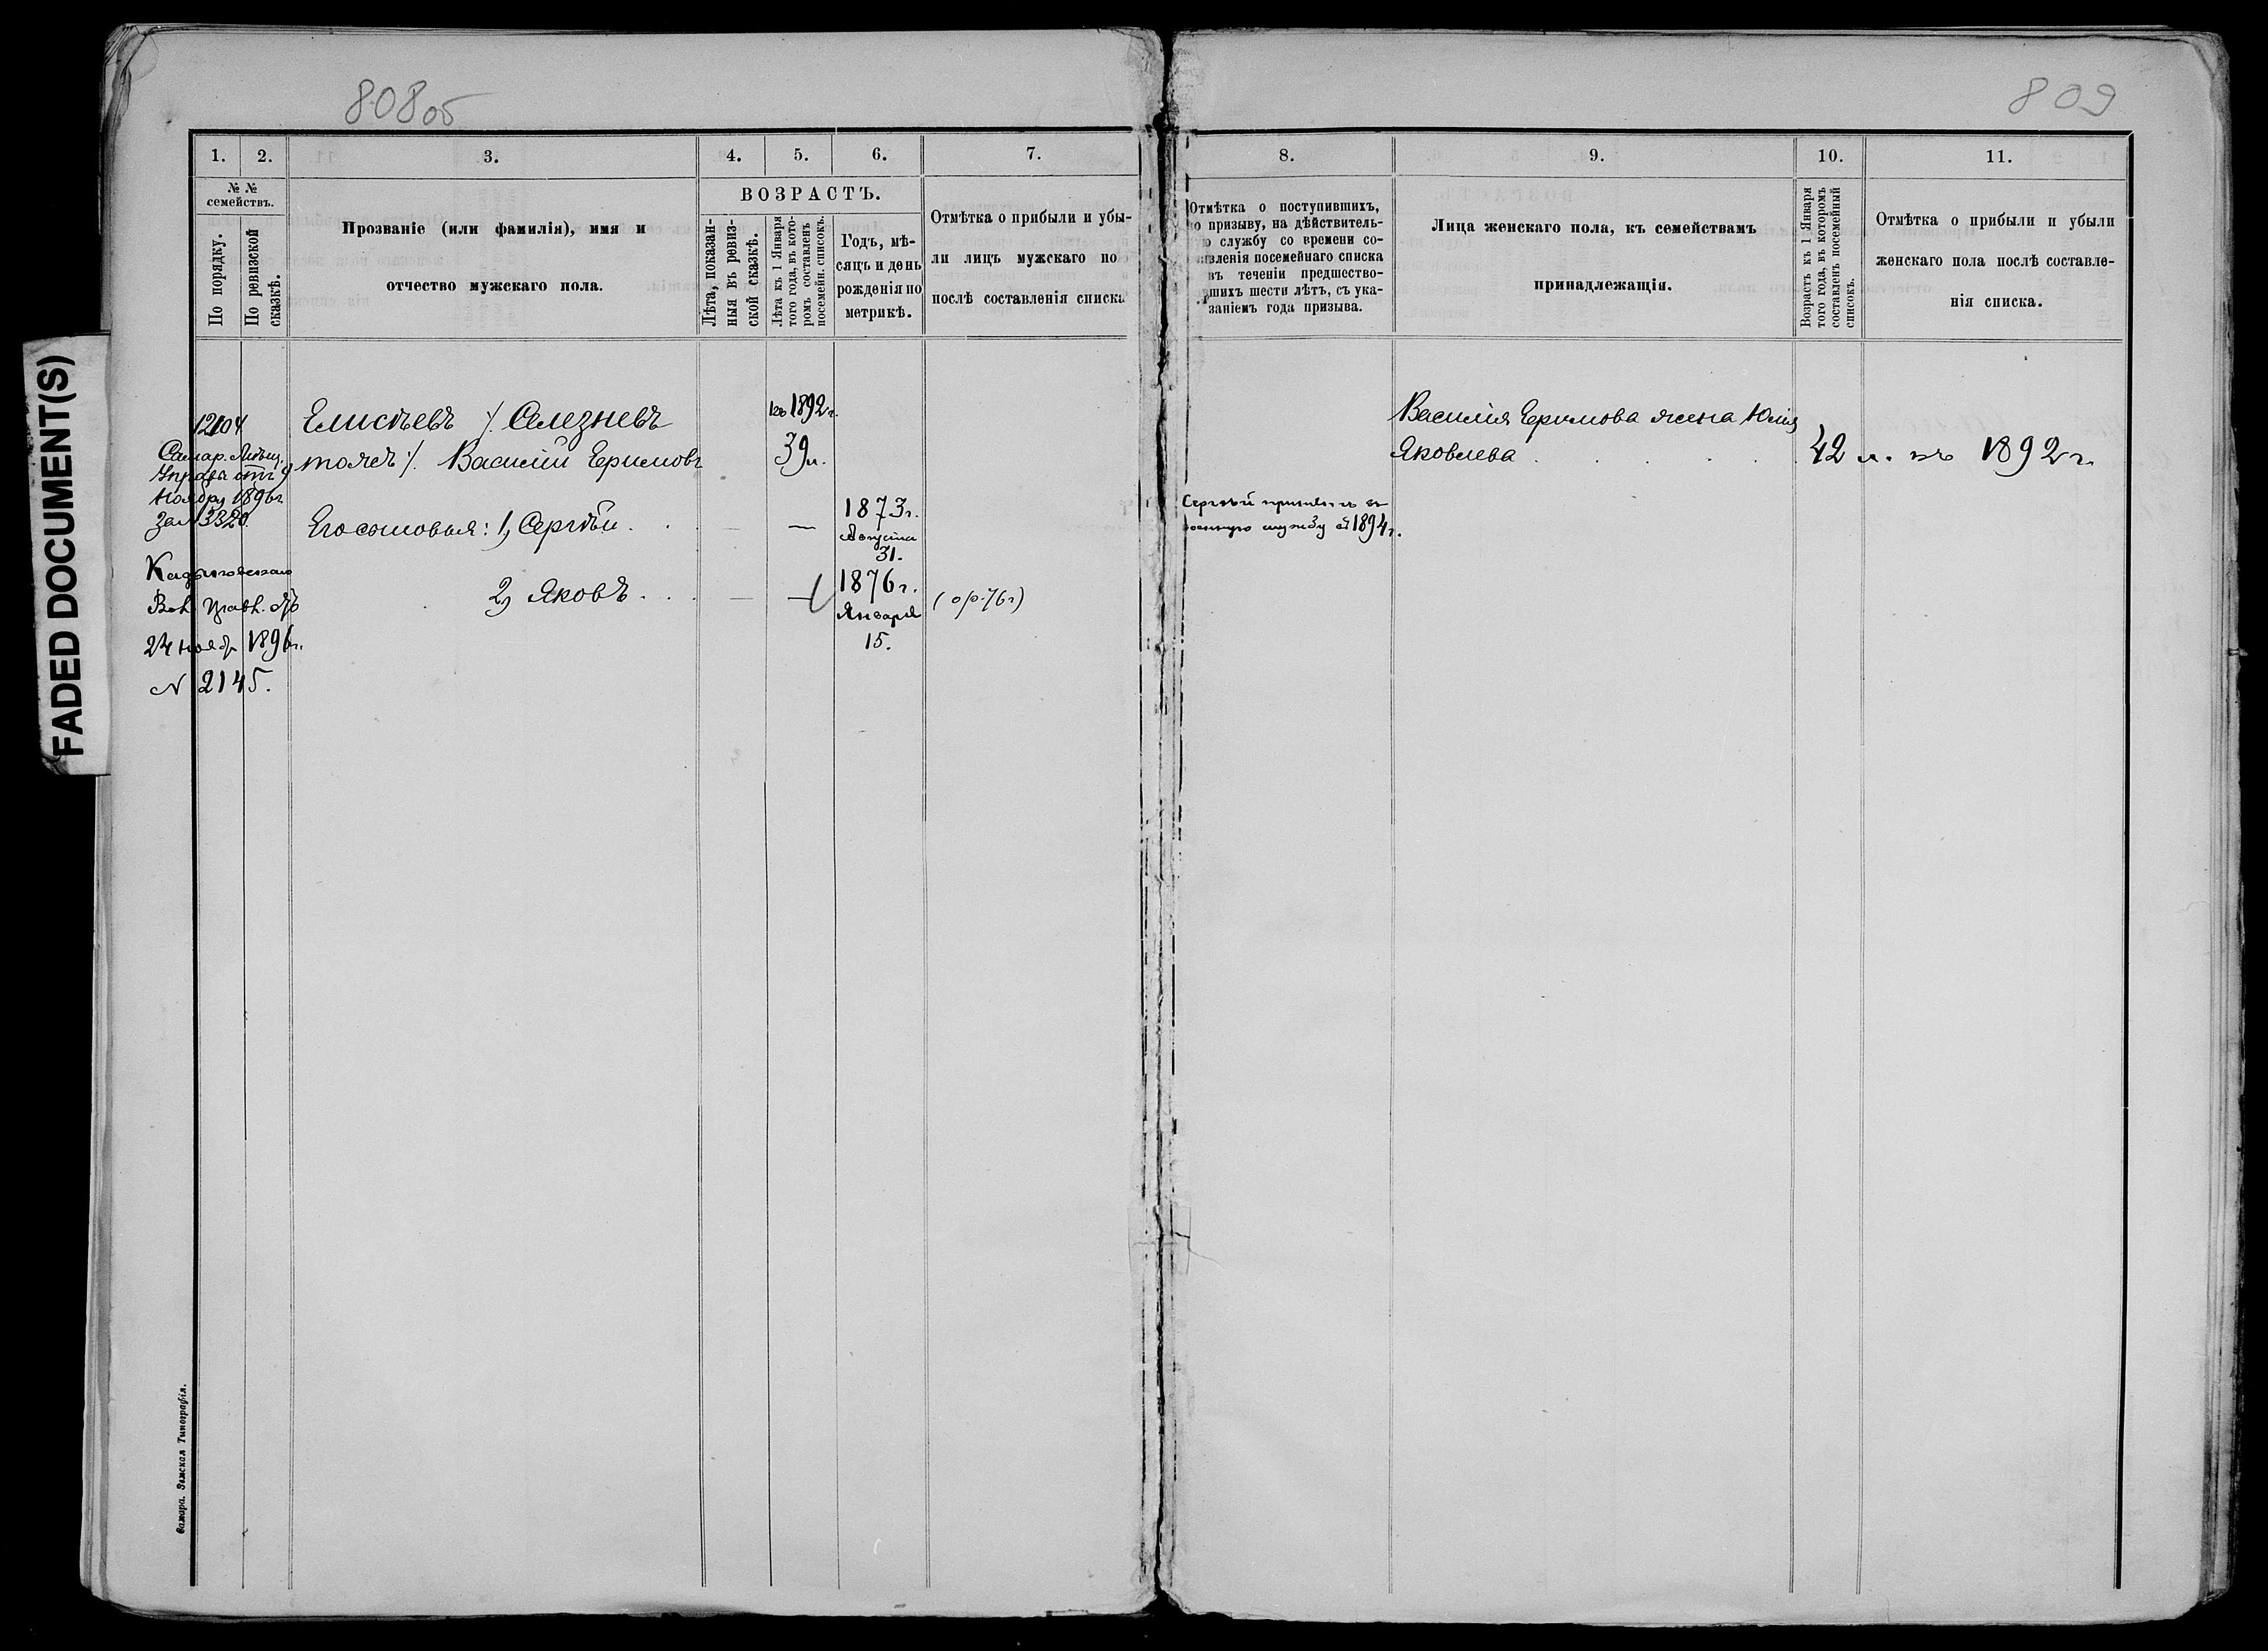 808 об
809
FADED DOCUMENT(S)
1.
2.
3.
4.
5.
6.
7.
8.
9.
10.
11.
№ №
семействъ.
По порядку.
По ревизской
сказкѣ.
Прозваніе (или фамилія), имя и
отчество мужскаго пола.
ВОЗРАСТЪ.
Лѣта, показан-
ныя въ ревиз-
ской сказкѣ.
Лѣта къ 1 Января
того года, въ кото-
ромъ составленъ
посемейн. списокъ.
Годъ, мѣ-
сяцъ и день
рожденія по
метрикѣ.
Отмѣтка о прибыли и убы-
ли лицъ мужскаго по
послѣ составленія списка
Отмѣтка о поступившихъ,
по призыву, на дѣйствитель-
ю службу со времени со-
авленія посемейнаго списка
въ теченіи предшество-
вшихъ шести лѣтъ, съ ука-
заніемъ года призыва.
Лица женскаго пола, къ семействамъ
принадлежащія.
Возрастъ къ 1 Января
того года, въ которомъ
составленъ посемейный
списокъ.
Отмѣтка о прибыли и убыли
женскаго пола послѣ составле-
нія списка.
12104
Самар. Мѣщ.
Управа отъ 9
Ноября 1896г
за № 3320.
Вол. Правл. отъ
24 нояб. 1896г.
N 2145.
Елисѣевъ /. Селезневъ
тожъ /. Василій Ефимовъ
къ 1892г.
39 л.
Его сыновья: 1, Сергѣй . .
— —
1873г.
Августа
31.
2, Яковъ . . .
— —
1876г.
Января
15.
(ор. 76г)
Сергѣй принятъ въ
военную службу въ 1894г.
Василія Ефимова жена Юлія
Яковлева . . . . .
42 л. къ 1892г.
Самара. Земская Типографія.